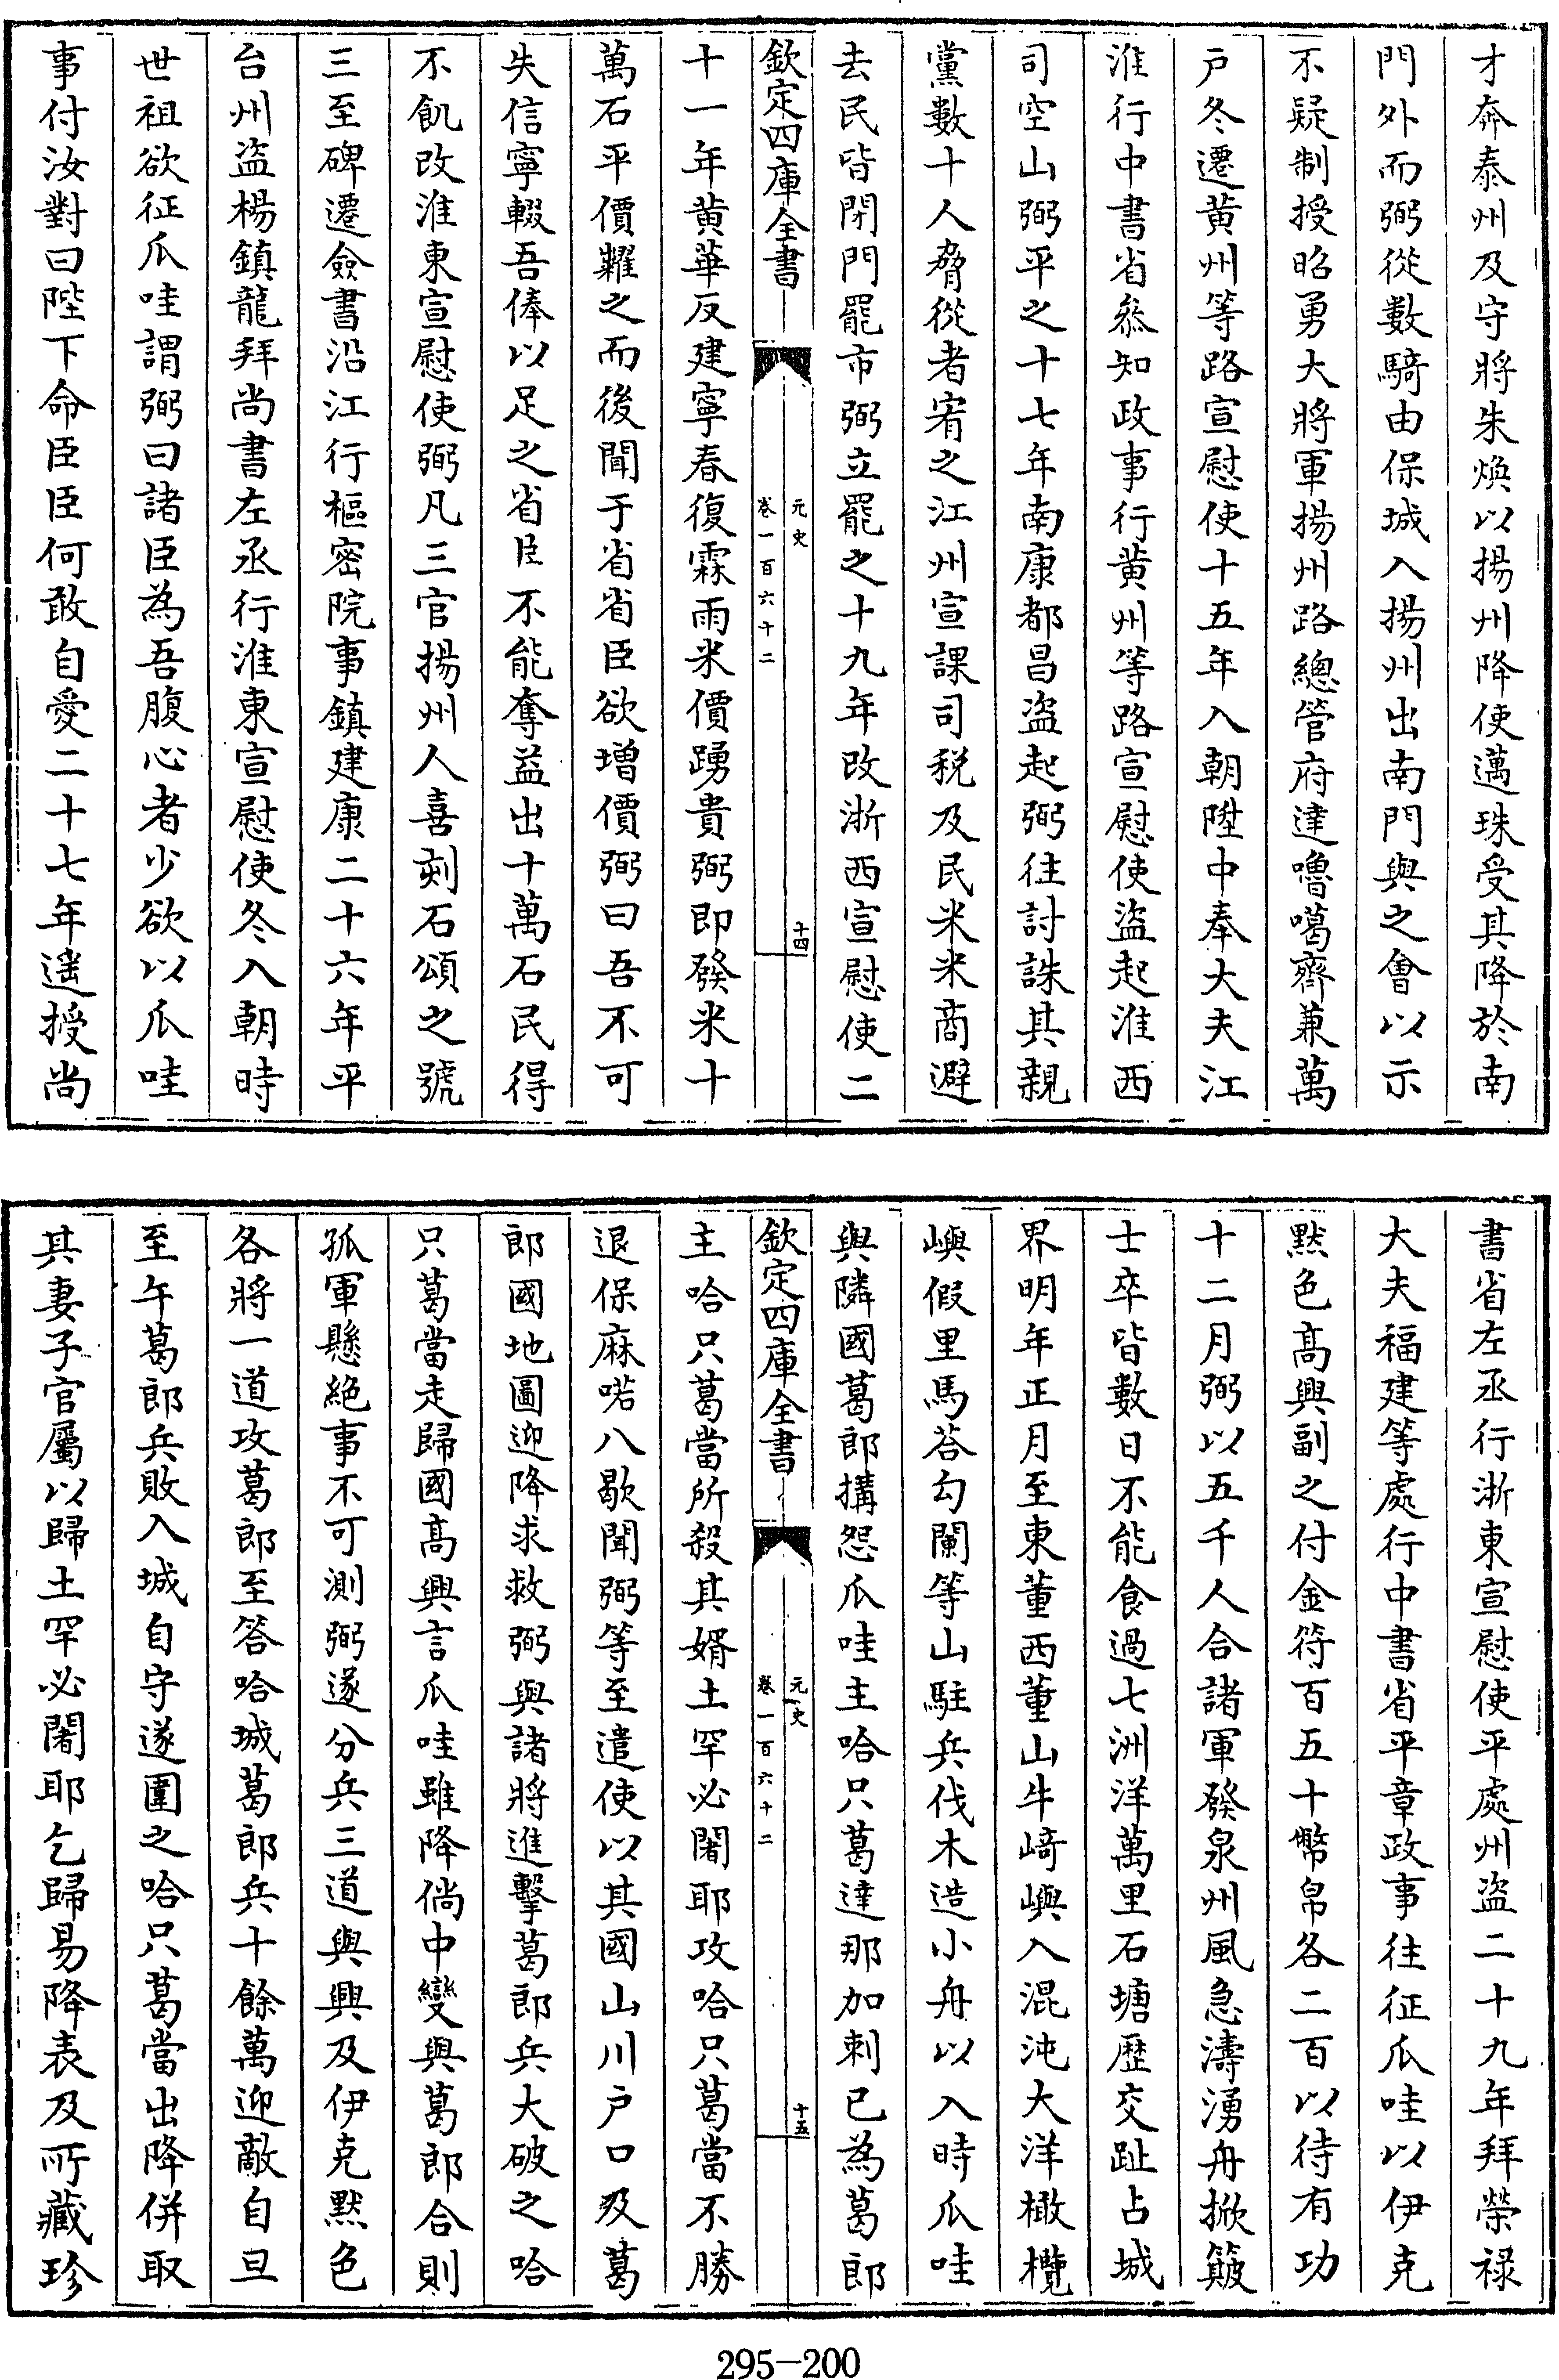 才奔泰州及守將朱煥以揚州降使邁珠受其降於南
門外而弼從數騎由保城入揚州出南門與之會以示
不疑制授昭勇大將軍揚州路總管府達嚕噶齊兼萬
戸冬遷黄州等路宣慰使十五年入朝陞中奉大夫江
淮行中書省叅知政事行黄州等路宣慰使盜起淮西
司空山弼平之十七年南康都昌盜起弼往討誅其親
黨數十人脅從者宥之江州宣課司税及民米米商避
去民皆閉門罷市弼立罷之十九年改浙西宣慰使二
欽定四庫全書
元史
卷一百六十二
十四
十一年黄華反建寧春復霖雨米價踴貴弼即發米十
萬石平價糶之而後聞于省省臣欲增價弼曰吾不可
失信寧輟吾俸以足之省臣不能奪益出十萬石民得
不飢改淮東宣慰使弼凡三官揚州人喜刻石頌之號
三至碑遷僉書沿江行樞密院事鎮建康二十六年平
台州盜楊鎮龍拜尚書左丞行淮東宣慰使冬入朝時
世祖欲征爪哇謂弼曰諸臣為吾腹心者少欲以爪哇
事付汝對曰陛下命臣臣何敢自愛二十七年遥授尚
書省左丞行浙東宣慰使平處州盜二十九年拜榮禄
大夫福建等處行中書省平章政事往征爪哇以伊克
黙色髙興副之付金符百五十幣帛各二百以待有功
十二月弼以五千人合諸軍發泉州風急濤湧舟掀簸
士卒皆數日不能食過七洲洋萬里石塘歷交趾占城
界明年正月至東董西董山牛崎嶼入混沌大洋橄欖
嶼假里馬荅勾闌等山駐兵伐木造小舟以入時爪哇
與隣國葛郎搆怨爪哇主哈只葛達那加刺已為葛郎
欽定四庫全書
元史
卷一百六十二
十五
主哈只葛當所殺其婿土罕必闍耶攻哈只葛當不勝
退保麻喏八歇聞弼等至遣使以其國山川户口及葛
郎國地圖迎降求救弼與諸將進擊葛郎兵大破之哈
只葛當走歸國髙興言爪哇雖降倘中變與葛郎合則
孤軍懸絶事不可測弼遂分兵三道與興及伊克黙色
各將一道攻葛郎至答哈城葛郎兵十餘萬迎敵自旦
至午葛郎兵敗入城自守遂圍之哈只葛當出降併取
其妻子官屬以歸土罕必闍耶乞歸易降表及所藏珍
295-200